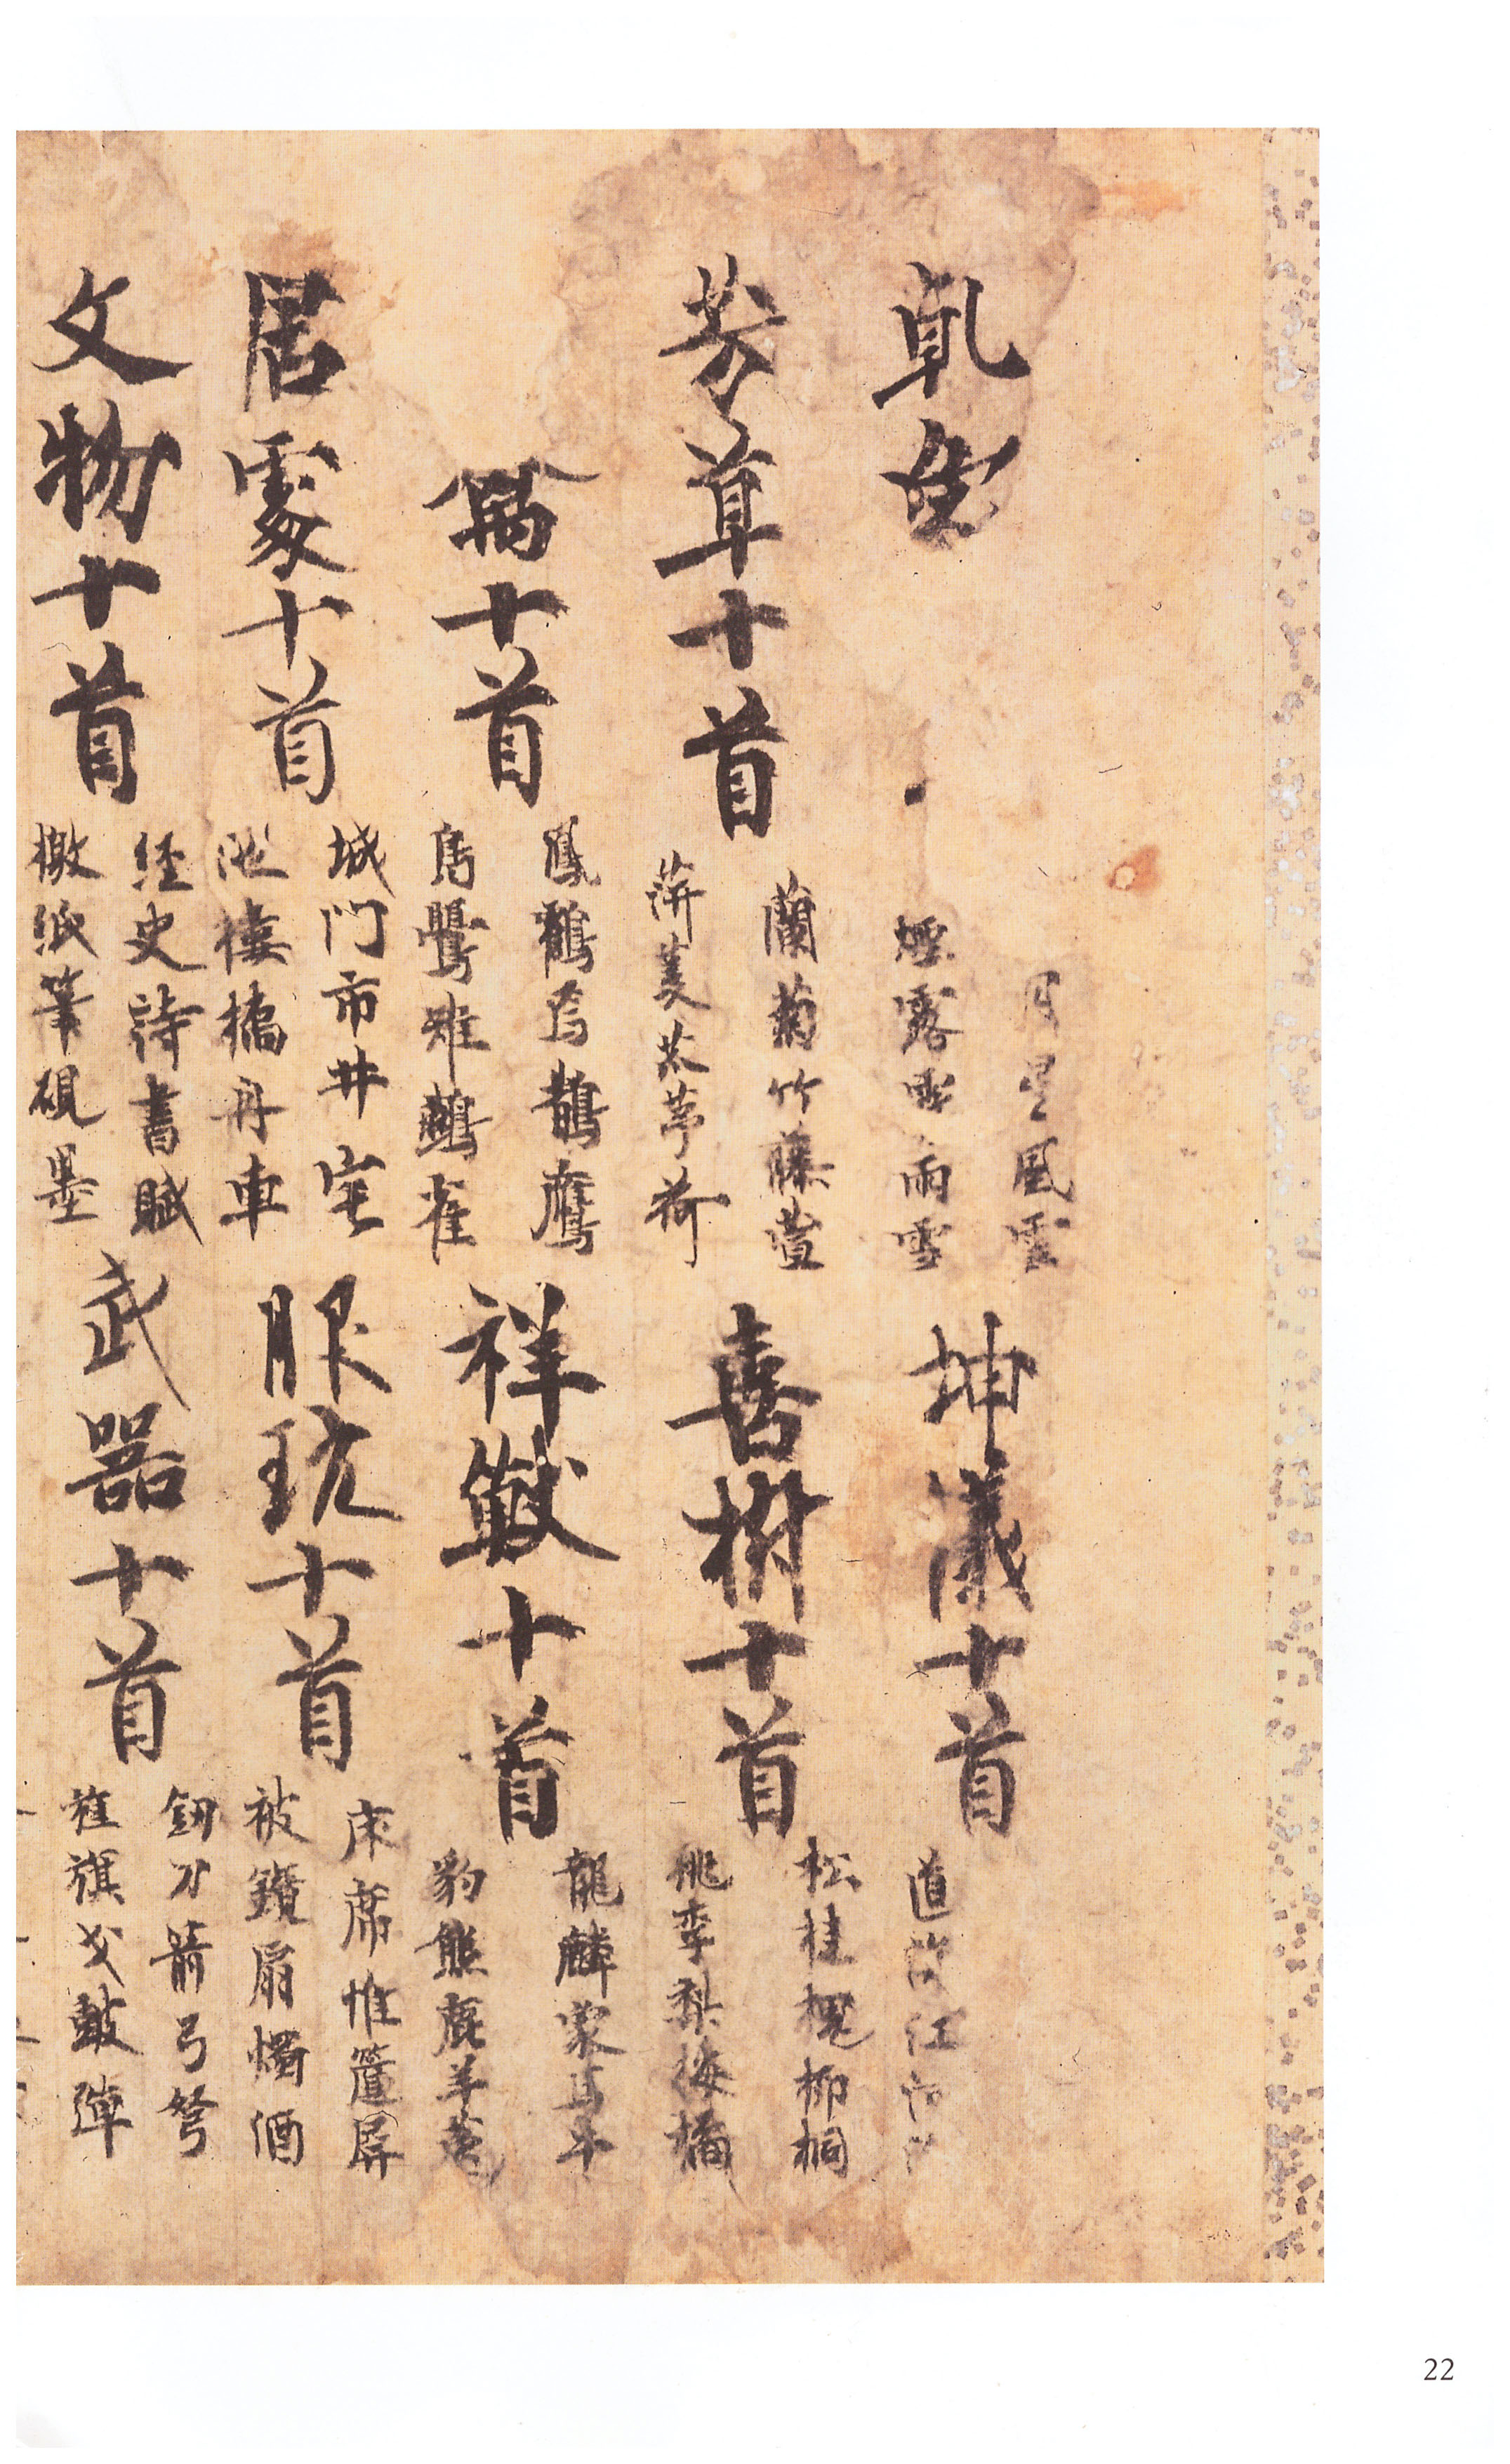 乹象
月星風雲
煙露霧雨雪
坤儀十首
道江河
芳草十首
蘭菊竹藤萱
萍菱茅荷
喜樹十首
松桂槐柳桐
桃李梨梅橘
禽十首
鳳鶴烏鵲鷹
鳧鸎雉鷰雀
祥獸十首
龍麟象馬牛
豹熊鹿羊菟
居處十首
城門市井宅
池樓橋舟車
服玩十首
床席帷簾屏
被鏡扇燭酒
文物十首
経史詩書賦
檄紙筆硯墨
武器十首
釼刀箭弓弩
旌旗戈鼓彈
22